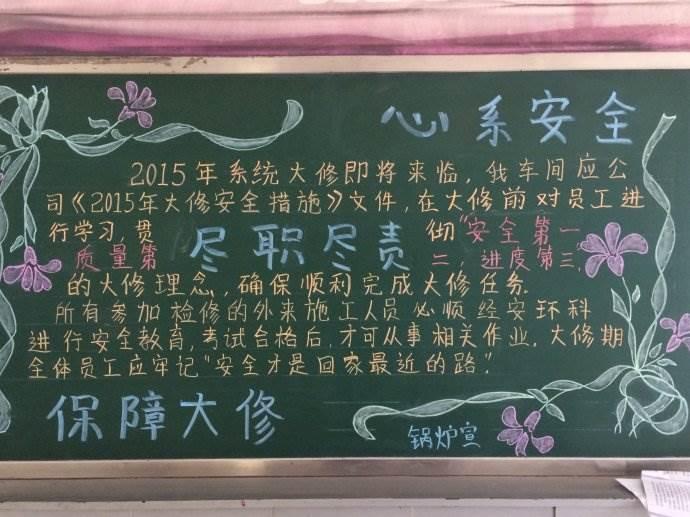 心系安全
2015年系统大修即将来临，我车间应公
司《2015年大修安全措施》文件，在大修前对员工进
行学习，贯 彻“安全第一
质量第 二，进度第三，
尽职尽责
的大修理念，确保顺利完成大修任务.
所有参加检修的外来施工人员必顺经安环科
进行安全教育，考试合格后，才可从事相关作业，大修期
全体员工应牢记“安全才是回家最近的路”.
保障大修
锅炉宣